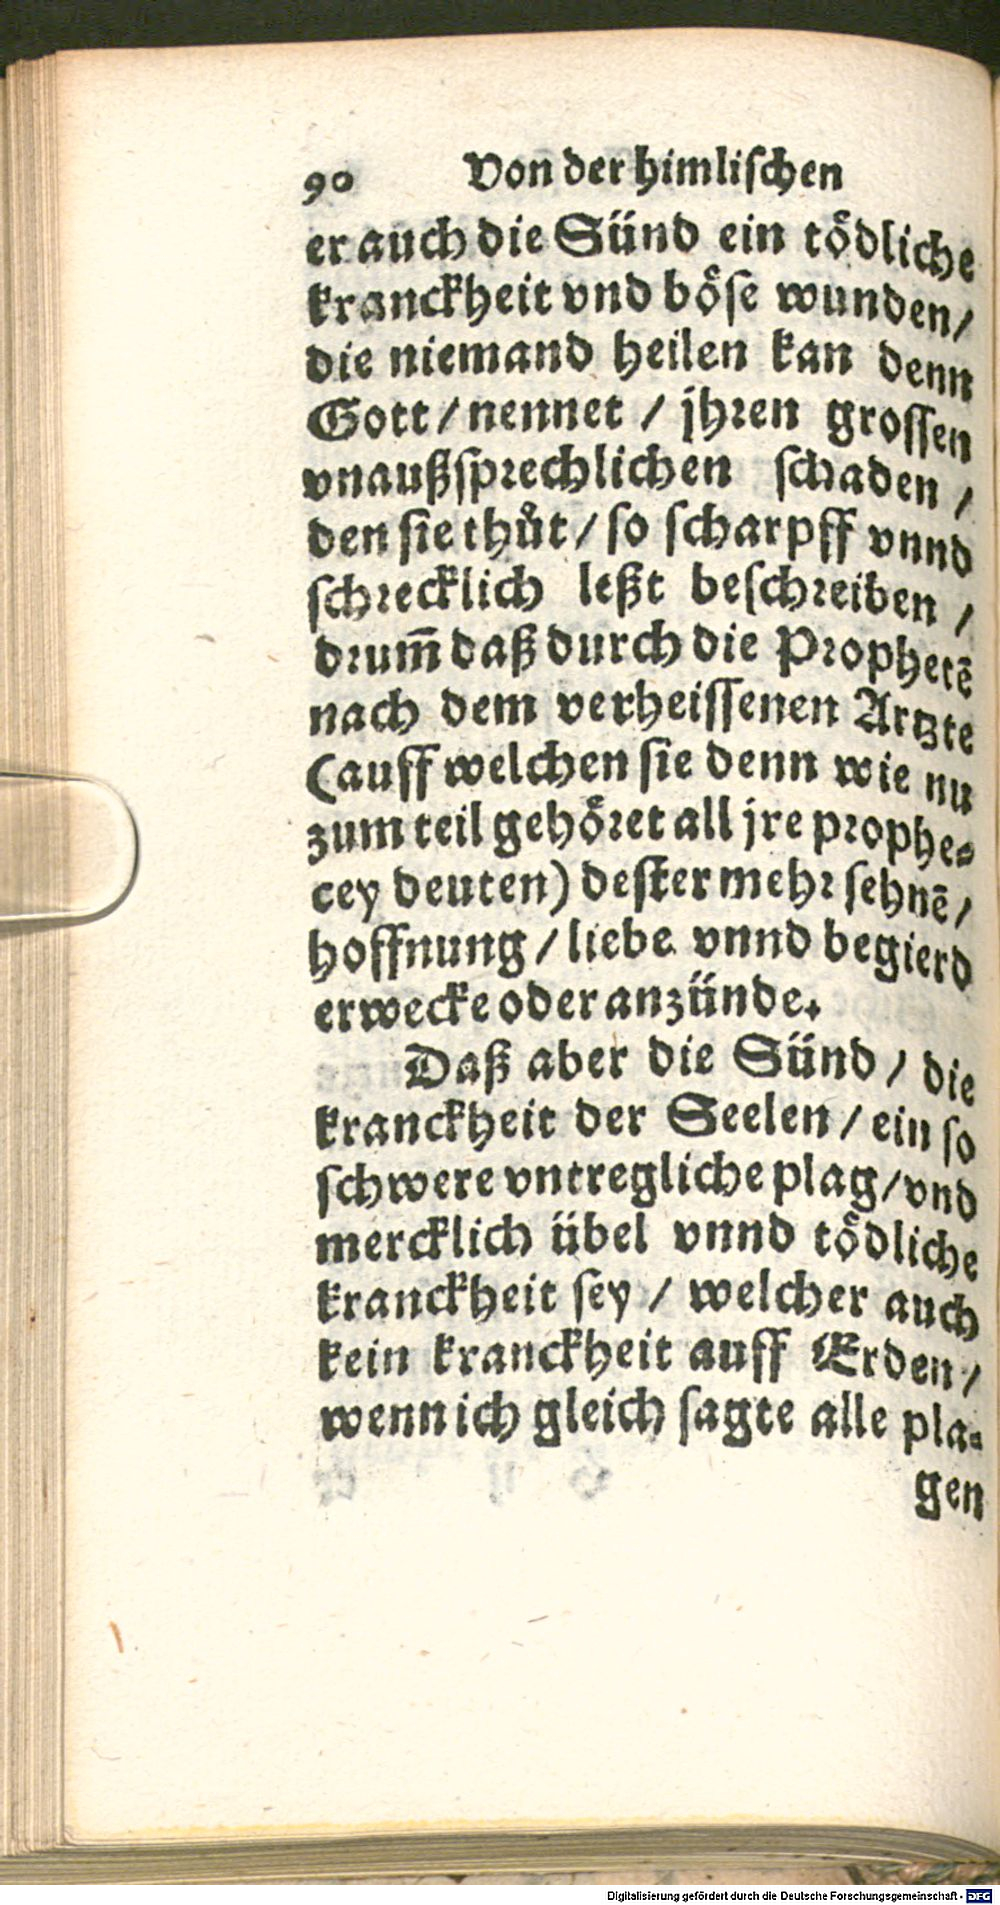 90 Von der himlischen
er auch die Sünd ein tödliche
kranckheit vnd böse wunden/
die niemand heilen kan denn
Gott/nennet / jhren grossen
vnaußsprechlichen schaden /
den sie thůt/so scharpff vnnd
schrecklich leßt beschreiben /
drum̃ daß durch die Prophetẽ
nach dem verheissenen Artzte
(auff welchen sie denn wie nu
zum teil gehöret all jre prophe-
cey deuten) dester mehr sehnẽ/
hoffnung/liebe vnnd begierd
erwecke oder anzünde.
Daß aber die Sünd/ die
kranckheit der Seelen/ein so
schwere vntregliche plag/vnd
mercklich übel vnnd tödliche
kranckheit sey / welcher auch
kein kranckheit auff Erden/
wenn ich gleich sagte alle pla-
gen
Digitalisierung gefördert durch die Deutsche Forschungsgemeinschaft - DFG